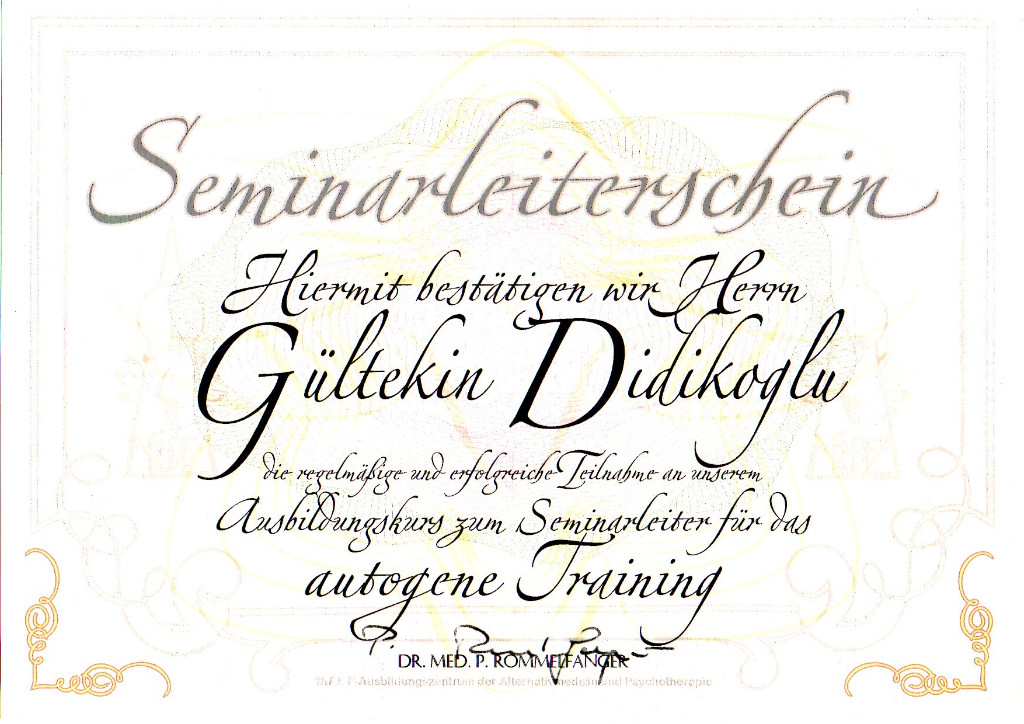 Seminarleiterschein
Hiermit bestätigen wir Herrn
Gültekin Didikoglu
die regelmäßige und erfolgreiche Teilnahme an unserem
Ausbildungskurs zum Seminarleiter für das
autogene Training
DR. MED. P. ROMMELFANGER
Ausbildungszentrum der Alternativmedizin und Psychotherapie